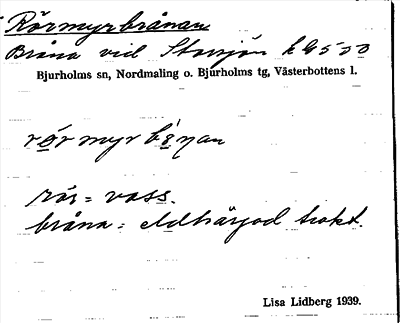 Rörmyrbrånan
Bråna vid Storsjön
Bjurholms sn, Nordmaling o. Bjurholms tg, Västerbottens l.
rör = vass.
bråna = eldhärjod trakt.
Lisa Lidberg 1939.